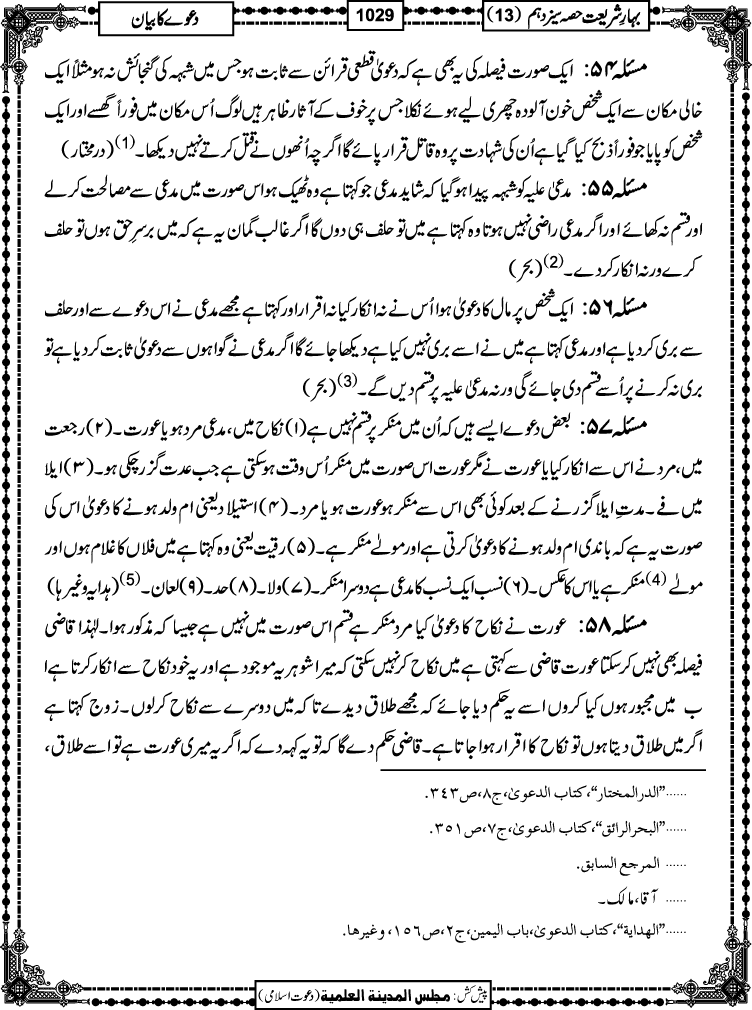 بہارِ شریعت حصہ سیزدہم (13)
1029
دعوے کا بیان
مسئلہ ۵۴: ایک صورت فیصلہ کی یہ بھی ہے کہ دعویٰ قطعی قرائن سے ثابت ہو جس میں شبہہ کی گنجائش نہ ہو مثلاً ایک
خالی مکان سے ایک شخص خون آلودہ چھری لیے ہوئے نکلا جس پر خوف کے آثار ظاہر ہیں لوگ اُس مکان میں فوراً گھسے اور ایک
شخص کو پایا جو فوراً ذبح کیا گیا ہے اُن کی شہادت پر وہ قاتل قرار پائے گا اگرچہ اُنھوں نے قتل کرتے نہیں دیکھا۔(1) (درمختار)
مسئلہ ۵۵: مدعیٰ علیہ کو شبہہ پیدا ہو گیا کہ شاید مدعی جو کہتا ہے وہ ٹھیک ہو اس صورت میں مدعی سے مصالحت کرلے
اور قسم نہ کھائے اور اگر مدعی راضی نہیں ہوتا وہ کہتا ہے میں تو حلف ہی دوں گا اگر غالب گمان یہ ہے کہ میں برسرِ حق ہوں تو حلف
کرے ورنہ انکار کردے۔(2) (بحر)
مسئلہ ۵۶: ایک شخص پر مال کا دعویٰ ہوا اُس نے نہ انکار کیا نہ اقرار اور کہتا ہے مجھے مدعی نے اس دعوے سے اور حلف
سے بری کردیا ہے اور مدعی کہتا ہے میں نے اسے بری نہیں کیا ہے دیکھا جائے گا اگر مدعی نے گواہوں سے دعویٰ ثابت کردیا ہے تو
بری نہ کرنے پر اُسے قسم دی جائے گی ورنہ مدعیٰ علیہ پر قسم دیں گے۔(3) (بحر)
مسئلہ ۵۷: بعض دعوے ایسے ہیں کہ اُن میں منکر پر قسم نہیں ہے (۱) نکاح میں، مدعی مرد ہو یا عورت۔ (۲) رجعت
میں، مرد نے اس سے انکار کیا یا عورت نے مگر عورت اس صورت میں منکر اُس وقت ہو سکتی ہے جب عدت گزر چکی ہو۔ (۳) ایلا
میں فے۔ مدتِ ایلا گزرنے کے بعد کوئی بھی اس سے منکر ہو عورت ہو یا مرد۔ (۴) استیلا دیعنی ام ولد ہونے کا دعویٰ اس کی
صورت یہ ہے کہ باندی ام ولد ہونے کا دعویٰ کرتی ہے اور مولےٰ منکر ہے۔ (۵) رقیت یعنی وہ کہتا ہے میں فلاں کا غلام ہوں اور
مولےٰ(4) منکر ہے یا اس کا عکس۔ (۶) نسب ایک نسب کا مدعی ہے دوسرا منکر۔ (۷) ولا۔ (۸) حد۔ (۹) لعان۔(5) (ہدایہ وغیرہا)
مسئلہ ۵۸: عورت نے نکاح کا دعویٰ کیا مرد منکر ہے قسم اس صورت میں نہیں ہے جیسا کہ مذکور ہوا۔ لہٰذا قاضی
فیصلہ بھی نہیں کرسکتا عورت قاضی سے کہتی ہے میں نکاح کر نہیں سکتی کہ میرا شوہر یہ موجود ہے اور یہ خود نکاح سے انکار کرتا ہے ا
ب میں مجبور ہوں کیا کروں اسے یہ حکم دیا جائے کہ مجھے طلاق دیدے تاکہ میں دوسرے سے نکاح کرلوں۔ زوج کہتا ہے
اگر میں طلاق دیتا ہوں تو نکاح کا اقرار ہوا جاتا ہے۔ قاضی حکم دے گا کہ تو یہ کہہ دے کہ اگر یہ میری عورت ہے تو اسے طلاق،
......"الدرالمختار"، كتاب الدعوىٰ، ج۸، ص۳۴۳.
......"البحرالرائق"، كتاب الدعوىٰ، ج۷، ص۳۵۱.
...... المرجع السابق.
...... آقا، مالک۔
......"الهداية"، كتاب الدعوىٰ، باب اليمين، ج۲، ص۱۵۶، وغيرها.
پیش کش: مجلس المدینۃ العلمیۃ (دعوت اسلامی)